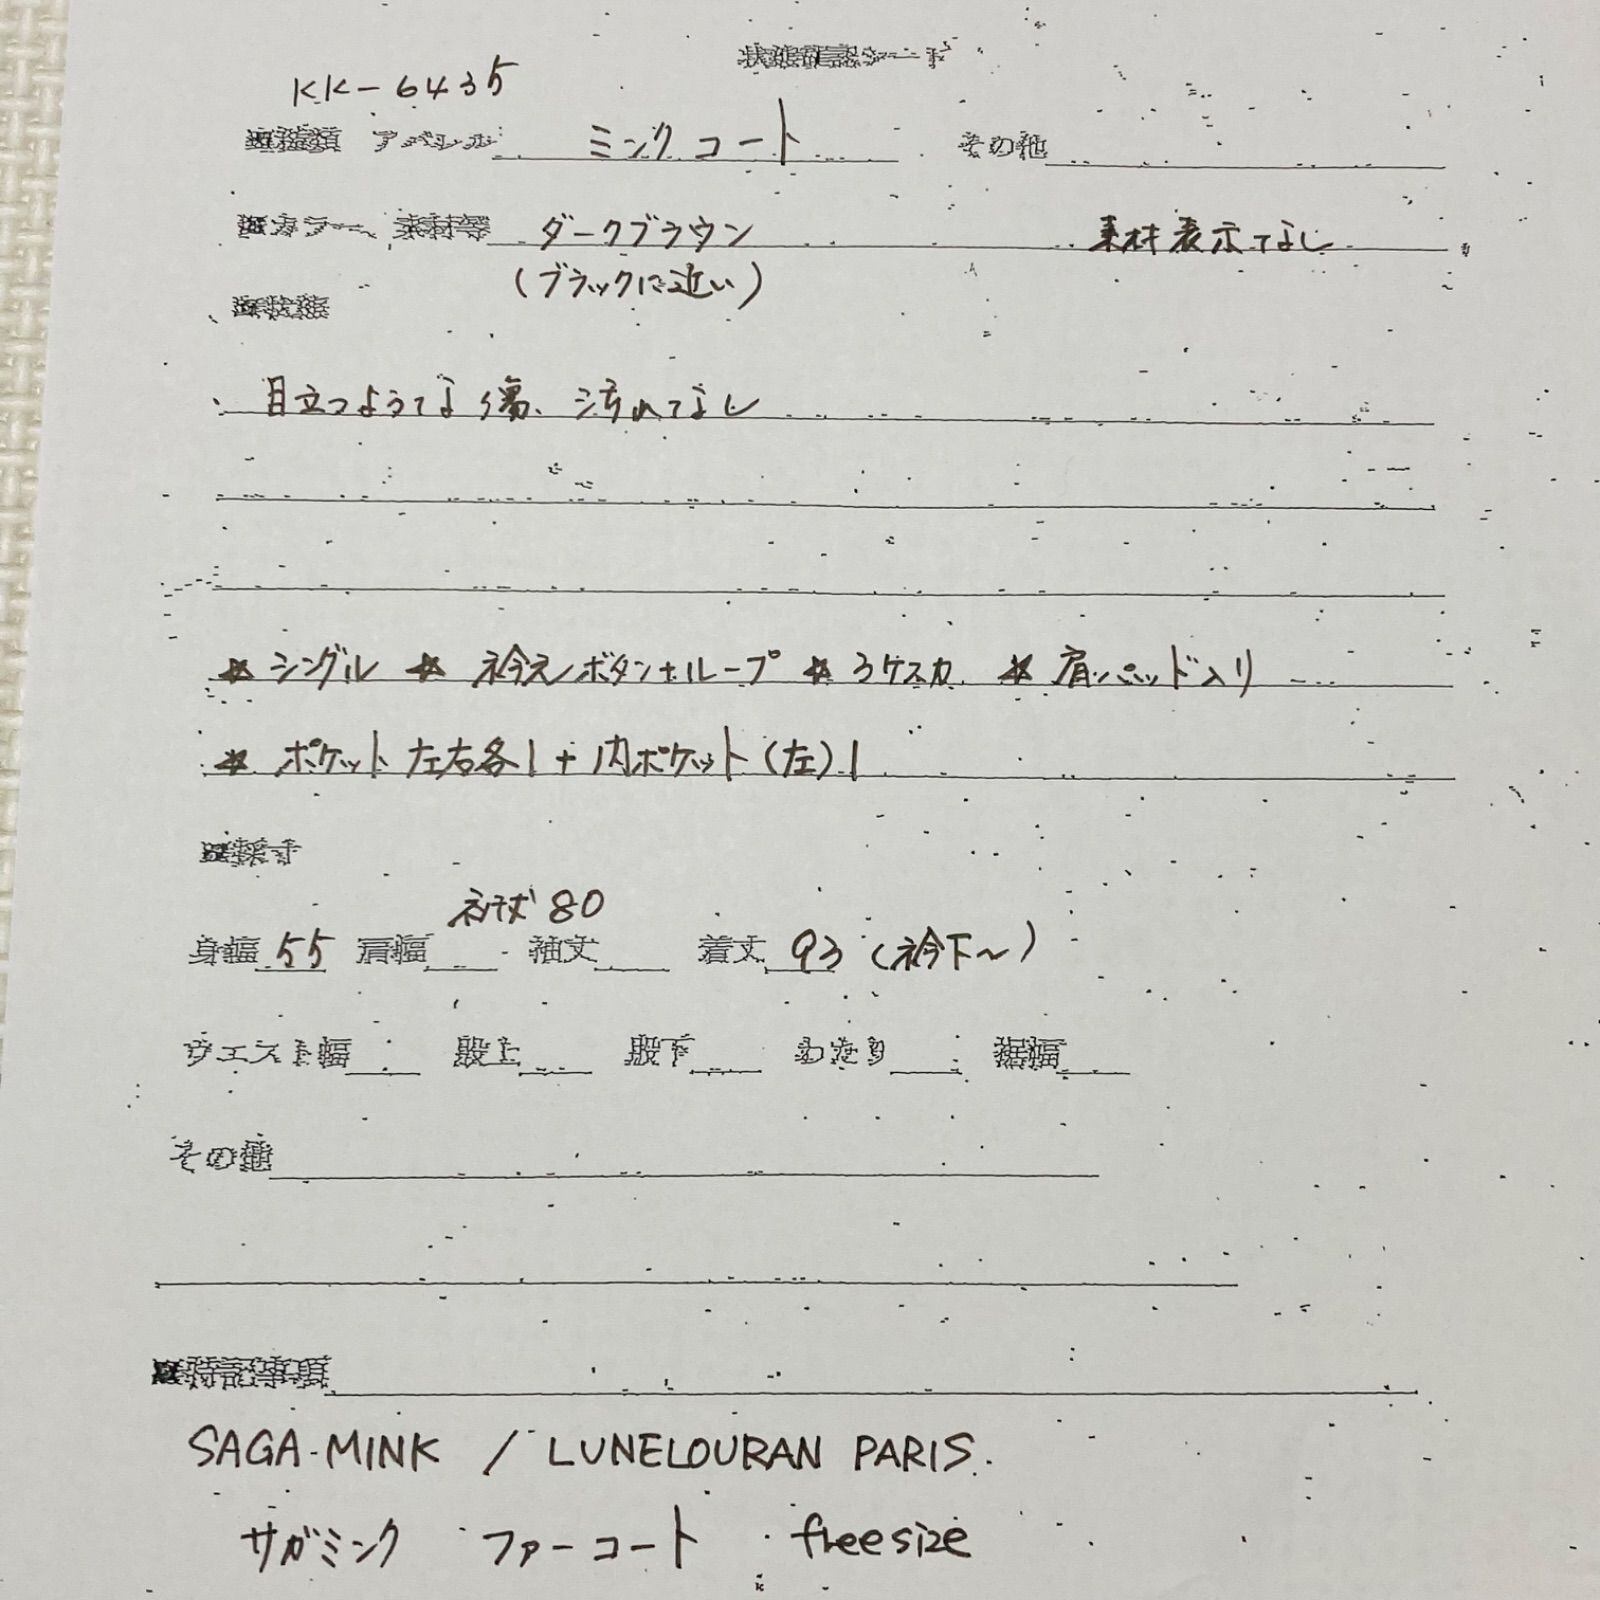 状態確認シート
KK-6435
■種類 アパレル ミンクコート その他
■カラー、素材等 ダークブラウン 素材表示なし
(ブラックに近い)
■状態
・目立つような傷、汚れなし
★ シングル ★ 衿元ボタン+ループ ★ 3ケスカ ★ 肩パッド入り
★ ポケット 左右各1+内ポケット(左)1
■採寸
ネック丈 80
身幅 55 肩幅 袖丈 着丈 93 (衿下〜)
ウエスト幅 股上 股下 わたり 裾幅
その他
■特記事項
SAGA-MINK / LUNELOURAN PARIS.
サガミンク ファーコート freesize